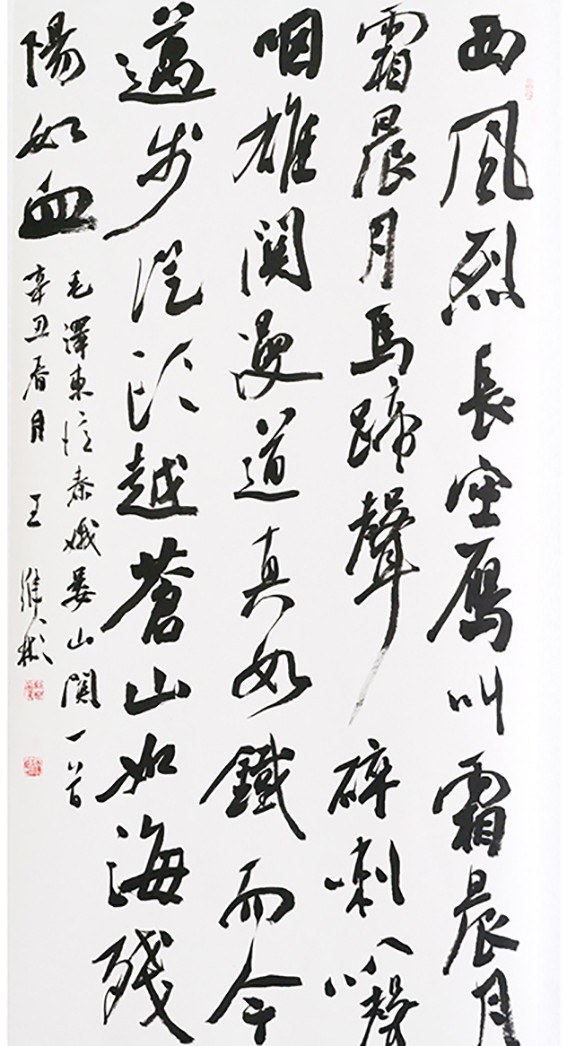 西風烈長空雁叫霜晨月
霜晨月馬蹄聲碎喇叭聲
咽雄関漫道真如鐵而今
邁步從頭越蒼山如海残
陽如血
毛澤東憶秦娥婁山関一首
辛丑春月 王維彬